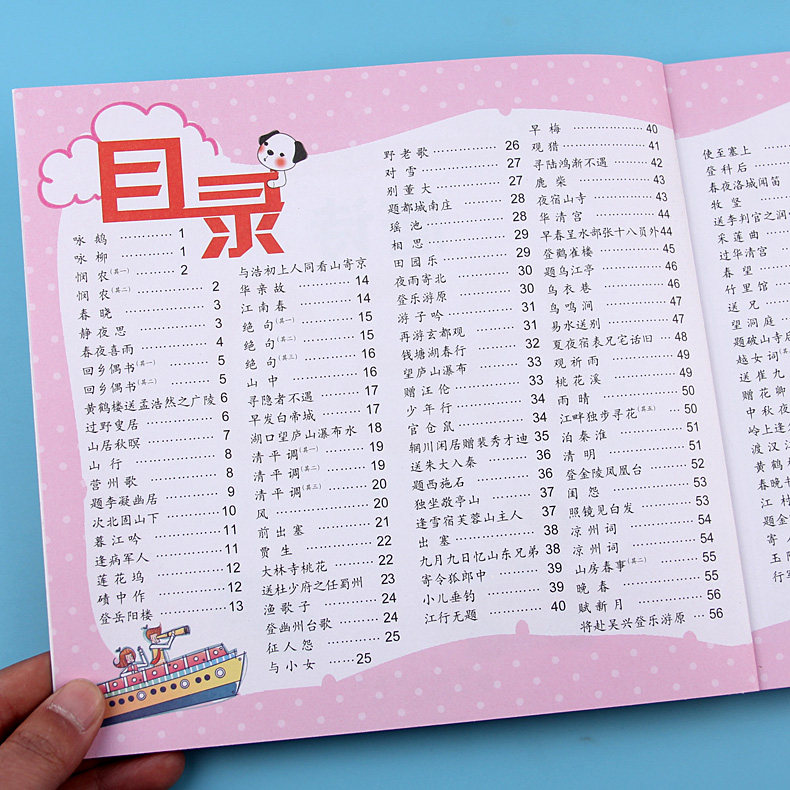 目录
咏鹅 ………… 1
咏柳 ………… 1
悯农(其一) ………… 2
悯农(其二) ………… 2
春晓 ………… 3
静夜思 ………… 3
春夜喜雨 ………… 4
回乡偶书(其一) ………… 5
回乡偶书(其二) ………… 5
黄鹤楼送孟浩然之广陵 6
过野叟居 ………… 6
山居秋暝 ………… 7
山行 ………… 8
营州歌 ………… 8
题李凝幽居 ………… 9
次北固山下 ………… 10
暮江吟 ………… 11
逢病军人 ………… 11
莲花坞 ………… 12
碛中作 ………… 12
登岳阳楼 ………… 13
与浩初上人同看山寄京
华亲故 ………… 14
江南春 ………… 14
绝句(其一) ………… 15
绝句(其二) ………… 15
绝句(其三) ………… 16
山中 ………… 16
寻隐者不遇 ………… 17
早发白帝城 ………… 17
湖口望庐山瀑布水 ………… 18
清平调(其一) ………… 19
清平调(其二) ………… 19
清平调(其三) ………… 20
风 ………… 20
前出塞 ………… 21
贾生 ………… 21
大林寺桃花 ………… 22
送杜少府之任蜀州 23
渔歌子 ………… 24
登幽州台歌 ………… 24
征人怨 ………… 25
与小女 ……25
野老歌 ………… 26
对雪 ………… 27
别董大 ………… 27
题都城南庄 ………… 28
瑶池 ………… 28
相思 ………… 29
田园乐 ………… 29
夜雨寄北 ………… 30
登乐游原 ………… 30
游子吟 ………… 31
再游玄都观 ………… 31
钱塘湖春行 ………… 32
望庐山瀑布 ………… 33
赠汪伦 ………… 33
少年行 ………… 34
官仓鼠 ………… 34
辋川闲居赠裴秀才迪 35
送朱大入秦 ………… 36
题西施石 ………… 36
独坐敬亭山 ………… 37
逢雪宿芙蓉山主人 37
出塞 ………… 38
九月九日忆山东兄弟 38
寄令狐郎中 ………… 39
小儿垂钓 ………… 39
江行无题 ………… 40
早梅 ………… 40
观猎 ………… 41
寻陆鸿渐不遇 ………… 42
鹿柴 ………… 43
夜宿山寺 ………… 43
华清宫 ………… 44
早春呈水部张十八员外44
登鹳雀楼 ………… 45
题乌江亭 ………… 46
乌衣巷 ………… 46
鸟鸣涧 ………… 47
易水送别 ………… 47
夏夜宿表兄宅话旧 48
观祈雨 ………… 48
桃花溪 ………… 49
雨晴 ………… 50
江畔独步寻花(其五) 50
泊秦淮 ………… 51
清明 ………… 51
登金陵凤凰台 ………… 52
闺怨 ………… 53
照镜见白发 ………… 53
凉州词 ………… 54
凉州词 ………… 54
山房春事(其二) ………… 55
晚春 ………… 55
赋新月 ………… 56
将赴吴兴登乐游原 …… 56
使至塞上
登科后
春夜洛城闻笛
牧竖
送李判官之润
采莲曲
过华清宫
春望
竹里馆
送兄
望洞庭
题破山寺
越女词
送崔九
赠花卿
中秋夜
岭上逢
渡汉江
黄鹤
春晚书
江村
题金
寄
玉阶
行军